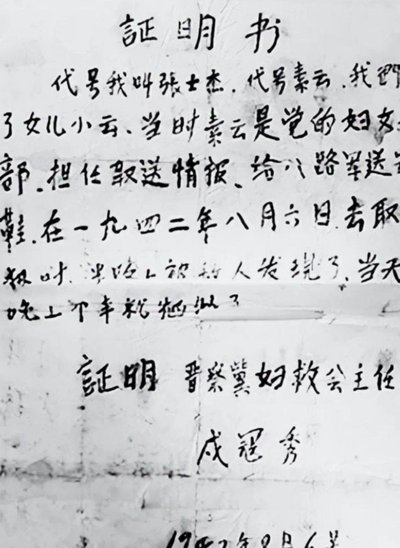 証明书
代号我叫張士杰.代号素云.我們
了女儿小云.当时素云是党的妇女
部.担任取送情报.给八路军送
鞋.在一九四二年八月六日去取
时.半路上被敌人发现了.当天
晚上不幸就牺牲了
証明 晋察冀妇救会主任
戎冠秀
年8月6号